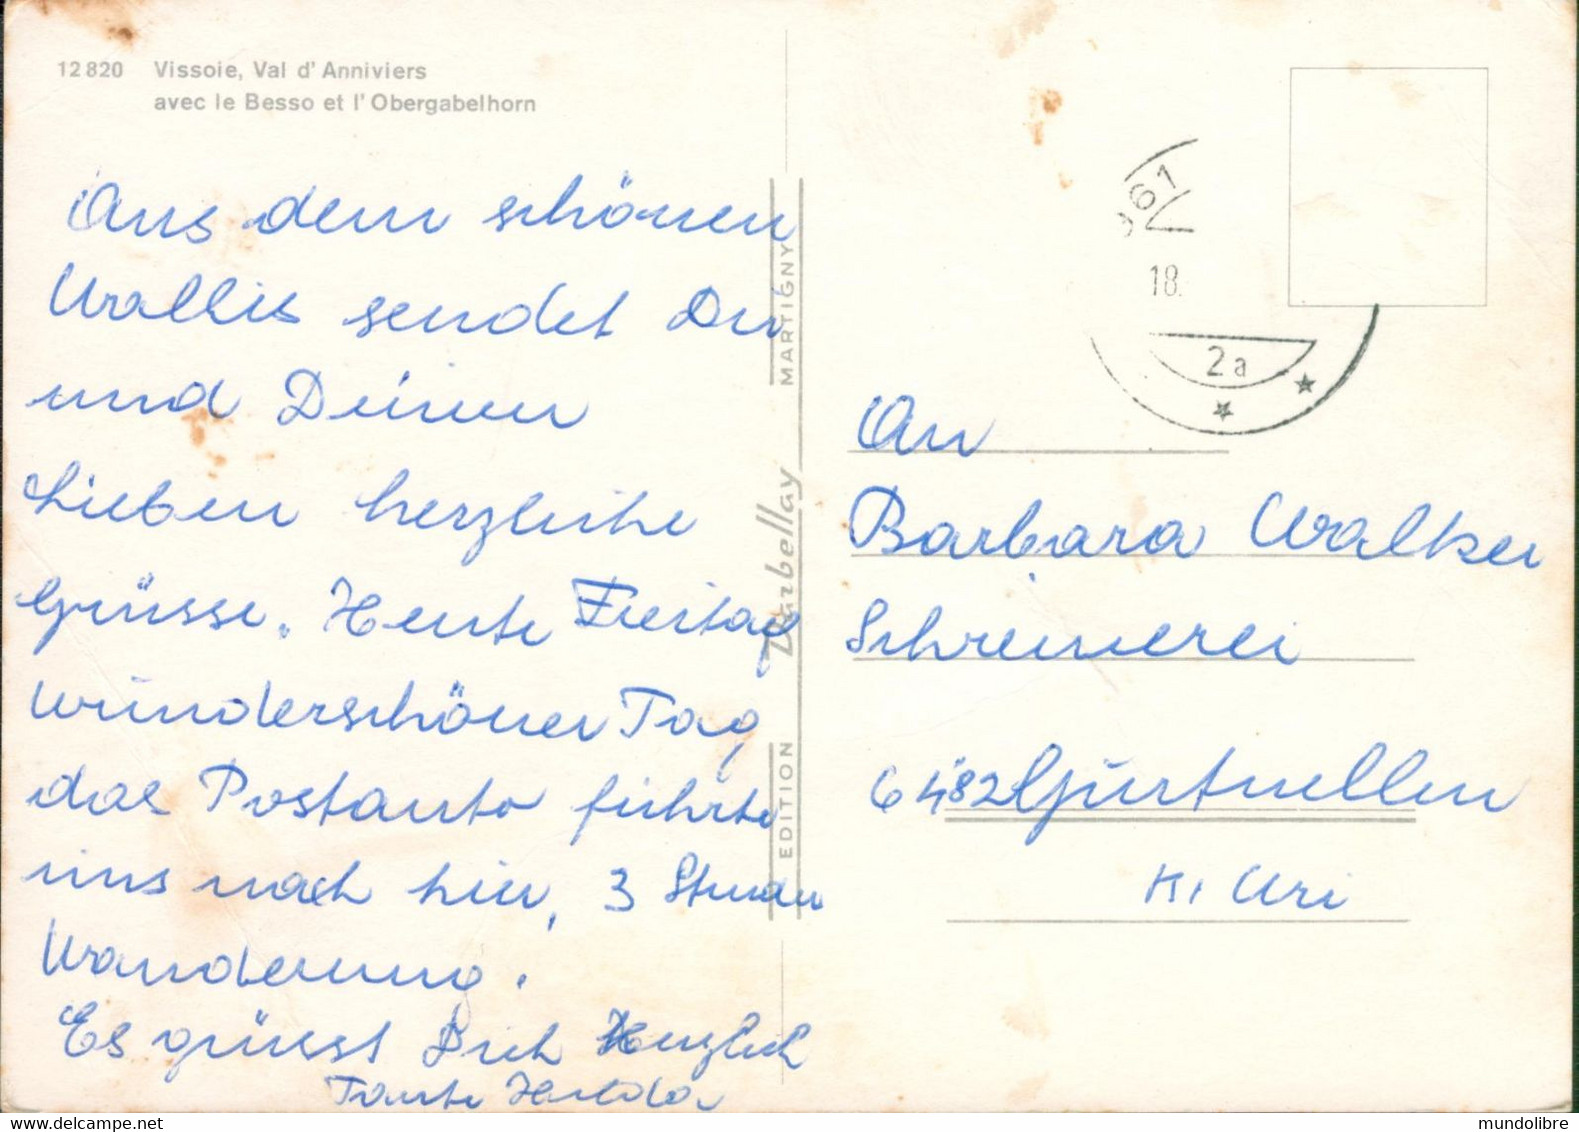 12820 Vissoie, Val d' Anniviers
avec le Besso et l' Obergabelhorn
Aus dem schönen
Wallis sendet Dir
und Deinen
Lieben herzliche
Grüsse. Heute Freitag
wunderschöner Tag
das Postauto führte
uns nach hier, 3 Stunden
Wanderung.
Es grüsst Dich Herzlich
Tante Hulda
EDITION Darbellay MARTIGNY
961
18.
2a
An
Barbara Walker
Schreinerei
6482 Gurtnellen
Kt Uri
mundolibre